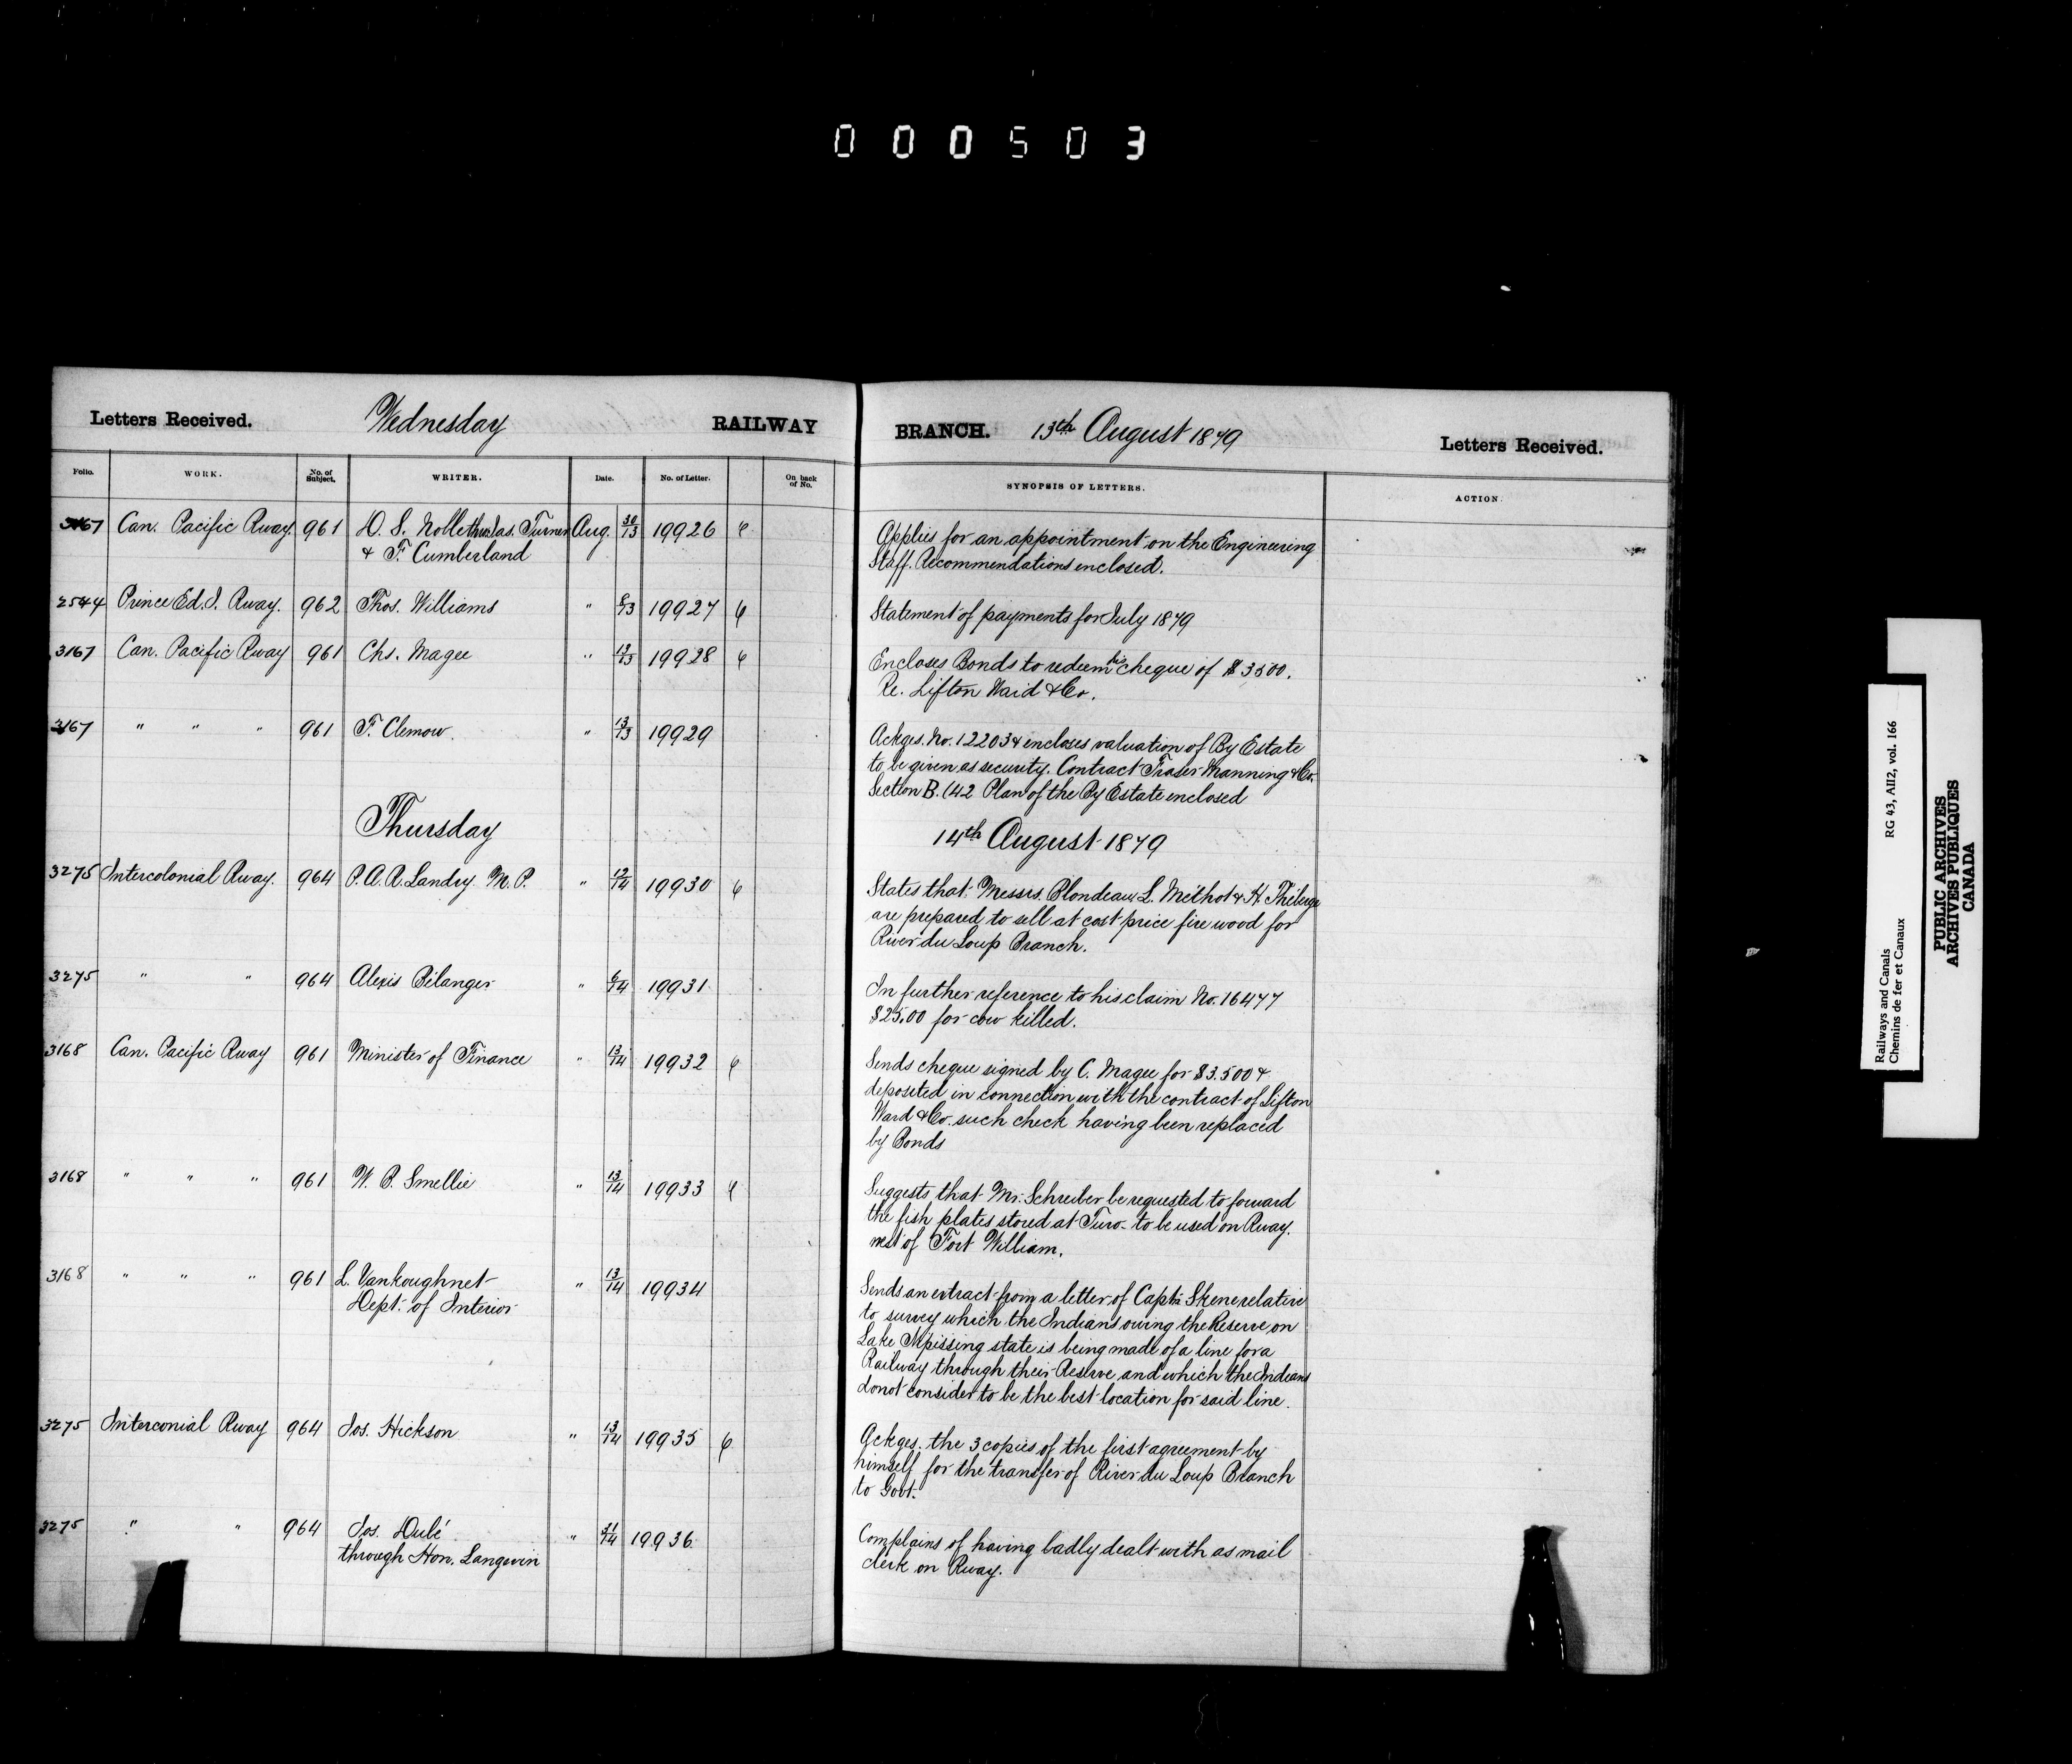 000503
Letters Received. Wednesday RAILWAY BRANCH. 13th August 1879 Letters Received.
Folio. WORK. No. of Subject. WRITER. Date. No. of Letter. On back of No. SYNOPSIS OF LETTERS. ACTION.
3167 Can. Pacific Rway. 961 D. S. Noble thro Jas. Turner Aug. 30/13 19926 Applies for an appointment on the Engineering
& F. Cumberland Staff. Recommendations enclosed.
2544 Prince Ed. I. Rway. 962 Thos. Williams " 8/13 19927 Statement of payments for July 1879
3167 Can. Pacific Rway 961 Chs. Magee " 13/13 19928 Encloses Bonds to redeem his cheque of $3500.
Re. Sifton Waid & Co.
3167 " " " 961 F. Clemow. " 13/13 19929 Ackges. No. 12203 & encloses valuation of By Estate
to be given as security. Contract Fraser Manning & Co.
Section B. (42 Plan of the By Estate enclosed
Thursday 14th August 1879
3275 Intercolonial Rway. 964 P. A. R. Landry M.P. " 12/14 19930 States that Messrs. Blondeau, L. Methot & H. Théberge
are prepared to sell at cost price fire wood for
River du Loup Branch.
3275 " " 964 Alexis Bélanger " 6/14 19931 In further reference to his claim No. 16477
$25.00 for cow killed.
3168 Can. Pacific Rway 961 Minister of Finance " 13/14 19932 Sends cheque signed by C. Magee for $3.500 &
deposited in connection with the contract of Sifton
Ward & Co. such check having been replaced
by Bonds
3168 " " " 961 W. B. Smellie " 13/14 19933 Suggests that Mr. Schreiber be requested to forward
the fish plates stored at Truro to be used on Rway.
west of Fort William.
3168 " " " 961 L. Vankoughnet " 13/14 19934 Sends an extract from a letter of Captn Skene relative
Dept. of Interior to survey which the Indians owing the Reserve on
Lake Nipissing state is being made of a line for a
Railway through their Reserve and which the Indians
do not consider to be the best location for said line.
3275 Interconial Rway 964 Jos. Hickson " 13/14 19935 Ackges. the 3 copies of the first agreement by
himself for the transfer of River du Loup Branch
to Govt.
3275 " " 964 Jos. Dubé " 14 19936 Complains of having badly dealt with as mail
through Hon. Langevin clerk on Rway.
Railways and Canals RG 43, AII2, vol. 166
Chemins de fer et Canaux
PUBLIC ARCHIVES
ARCHIVES PUBLIQUES
CANADA